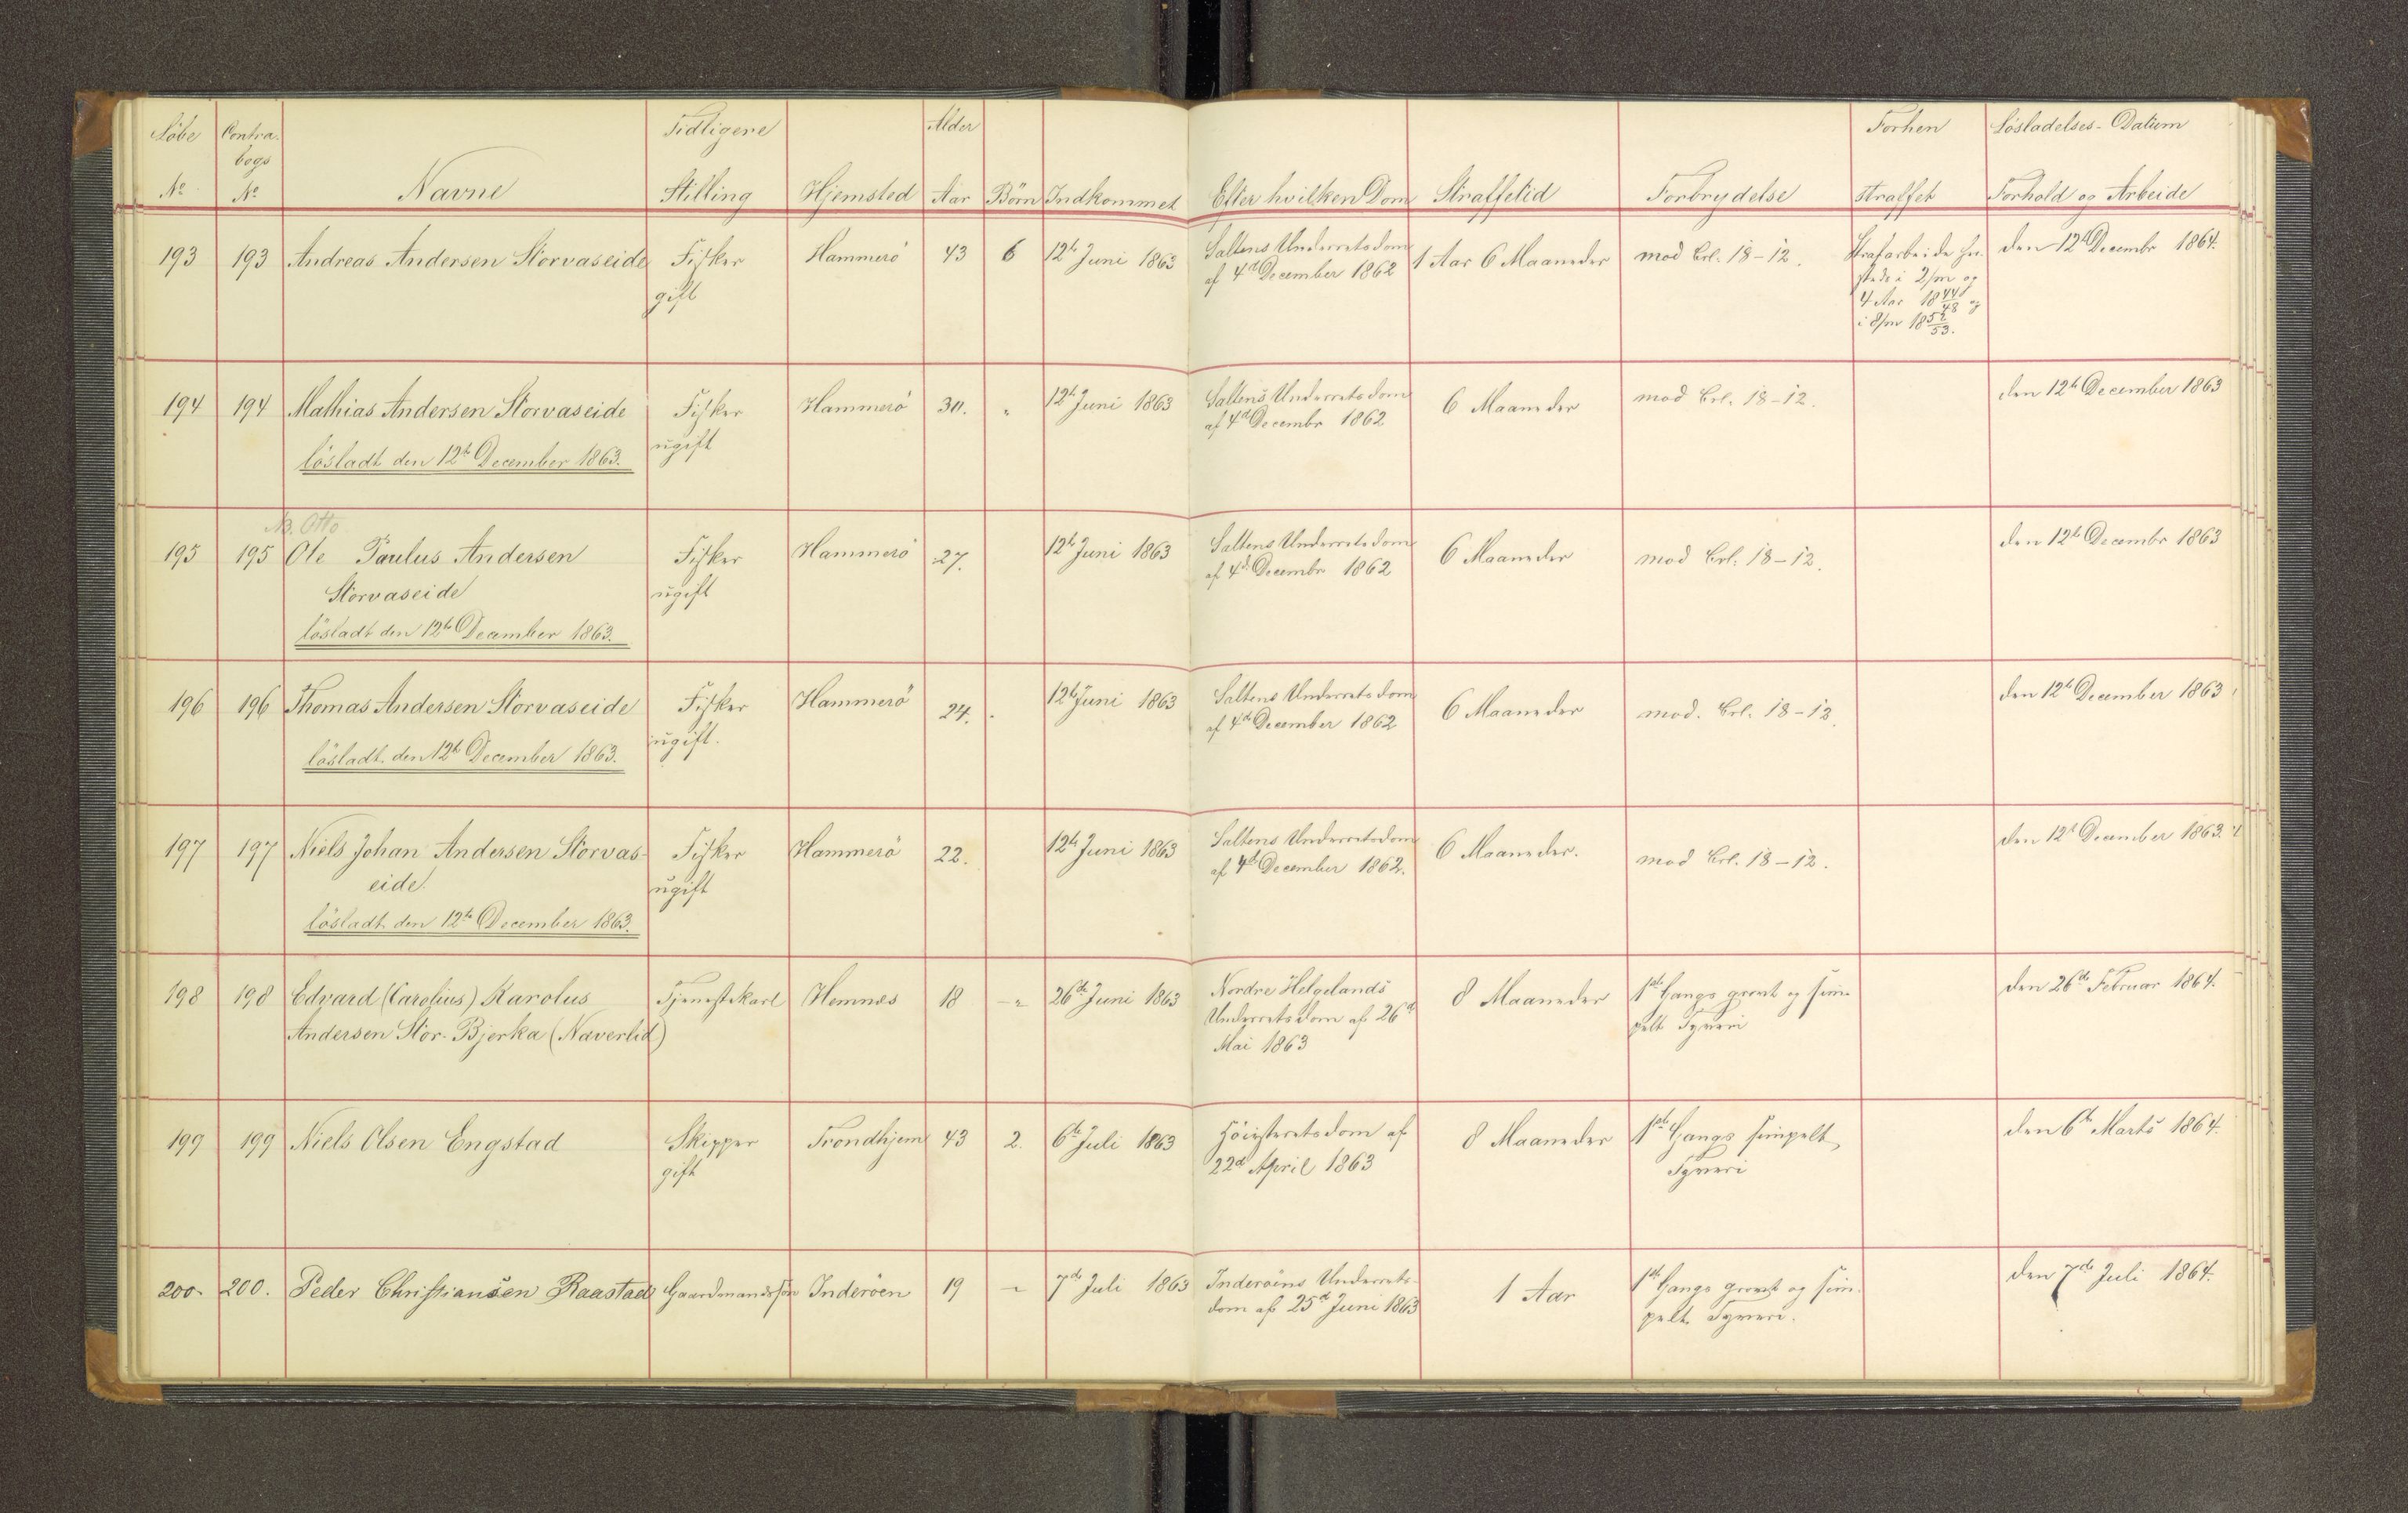 Löbe Contra- Tidligere Alder Forhen Lösladelses-Datum
bogs
No No Navne Stilling Hjemsted Aar Börn Indkommet Efter hvilken Dom Straffetid Forbrydelse straffet Forhold og Arbeide
193 193 Andreas Andersen Storvaseide Fisker Hammerö 43 6 12te Juni 1863 Saltens Underretsdom 1 Aar 6 Maaneder mod Crl. 18-12. Strafarbeide her- den 12te Decembr 1864.
gift af 4de December 1862 stede i 2/m og
4 Aar 1844/48 og
i 8/m 1852/53.
194 194 Mathias Andersen Storvaseide Fisker Hammerö 30. " 12te Juni 1863 Saltens Underretsdom 6 Maaneder mod Crl. 18-12. den 12te December 1863
lösladt den 12te December 1863. ugift af 4de Decembr 1862
NB. Otto
195 195 Ole Paulus Andersen Fisker Hammerö 27. 12te Juni 1863 Saltens Underretsdom 6 Maaneder mod Crl. 18-12. den 12te Decembr 1863
Storvaseide ugift af 4de Decembr 1862
lösladt den 12te December 1863.
196 196 Thomas Andersen Storvaseide Fisker Hammerö 24. 12te Juni 1863 Saltens Underretsdom 6 Maaneder mod. Crl. 18-12. den 12te December 1863
lösladt den 12te December 1863. ugift. af 4de December 1862
197 197 Niels Johan Andersen Storvas- Fisker Hammerö 22. 12te Juni 1863 Saltens Underretsdom 6 Maaneder. mod Crl. 18-12. den 12te December 1863.
eide. ugift af 4de December 1862.
lösladt den 12te December 1863.
198 198 Edvard (Carolius) Karolus Tjenestekarl Hemnæs 18 -"- 26de Juni 1863 Nordre Helgelands 8 Maaneder 1ste Gangs grovt og sim- den 26de Februar 1864.
Andersen Stor-Bjerka (Næverlid) Underretsdom af 26de pelt Tyveri
Mai 1863
199 199 Niels Olsen Engstad Skipper Trondhjem 43 2. 6te Juli 1863 Höiesteretsdom af 8 Maaneder 1ste Gangs simpelt den 6te Marts 1864.
gift 22de April 1863 Tyveri
200. 200. Peder Christiansen Raastad Gaardmandssön Inderöen 19 -"- 7de Juli 1863 Inderöens Underrets- 1 Aar 1ste Gangs grovt og sim- den 7de Juli 1864.
dom af 25de Juni 1863 pelt Tyveri.